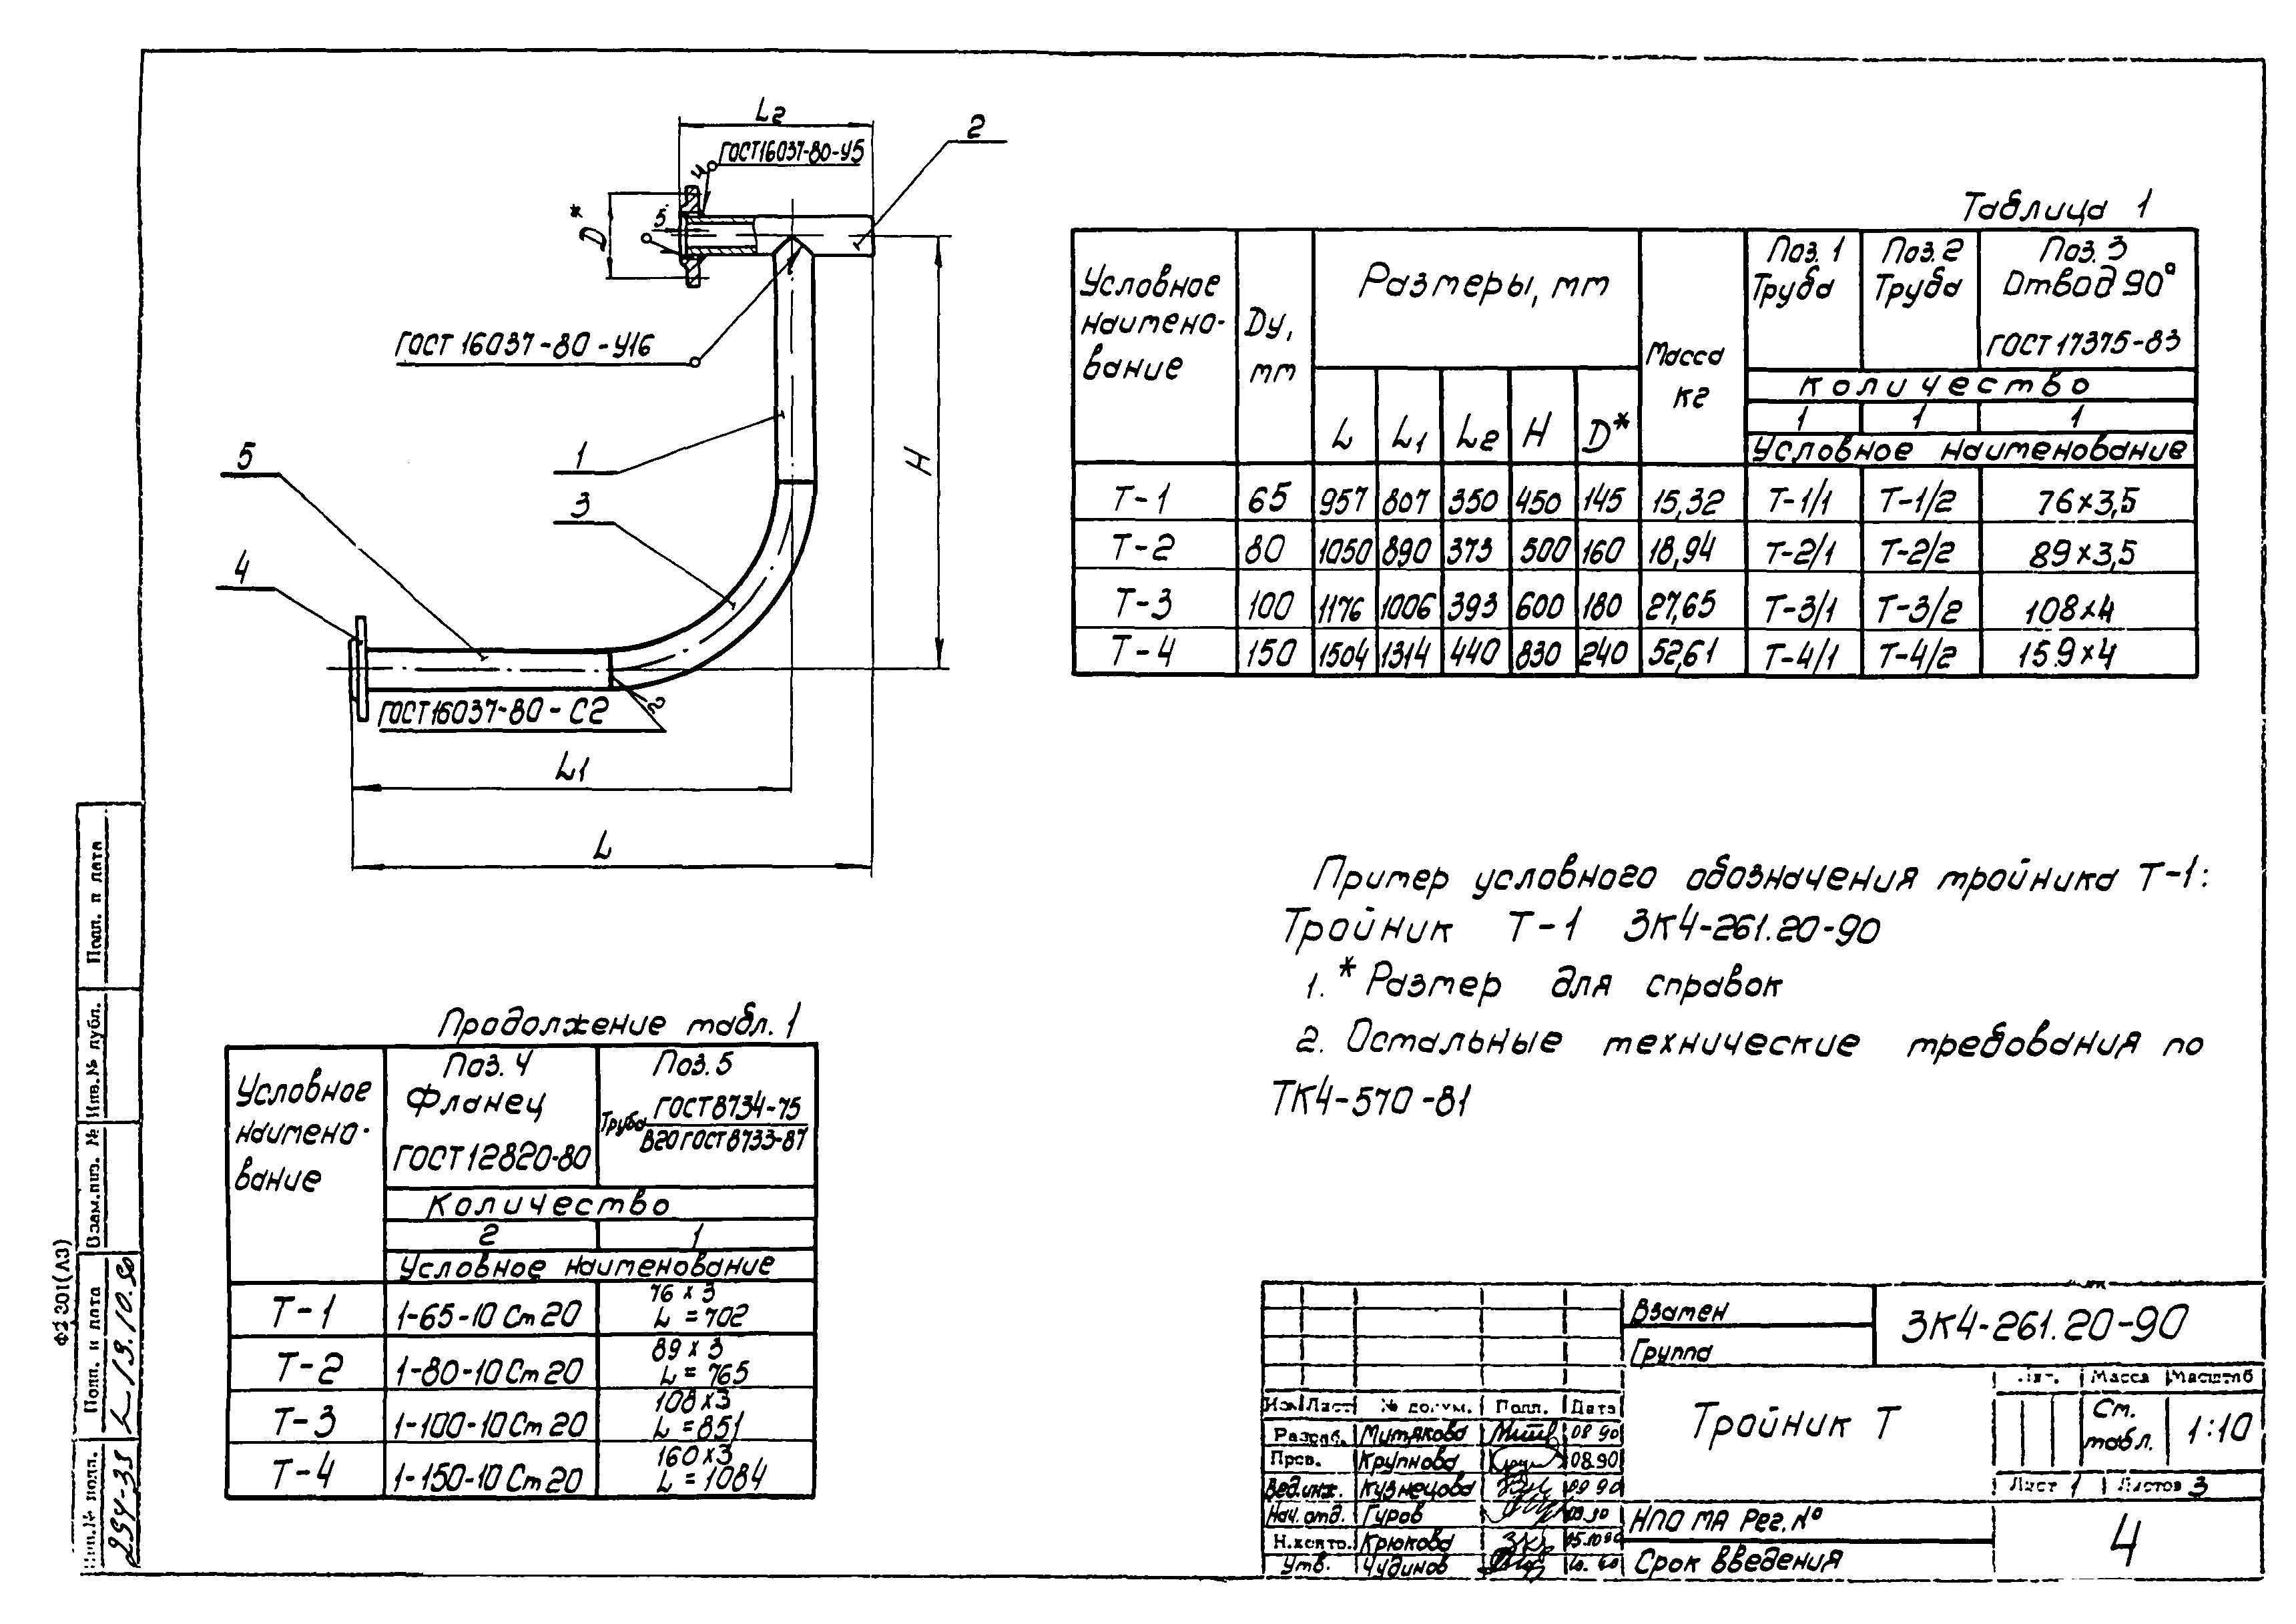 L2
ГОСТ 16037-80-У5
2
4
D*
5
ГОСТ 16037-80-У16
1
H
5
3
4
ГОСТ 16037-80-С2
2
L1
L
Таблица 1
Условное наимено-вание Dу, мм Размеры, мм Масса кг Поз. 1 Труба Поз. 2 Труба Поз. 3 Отвод 90° ГОСТ 17375-83
Количество
L L1 L2 H D* 1 1 1
Условное наименование
Т-1 65 957 807 350 450 145 15,32 Т-1/1 Т-1/2 76×3,5
Т-2 80 1050 890 373 500 160 18,94 Т-2/1 Т-2/2 89×3,5
Т-3 100 1176 1006 393 600 180 27,65 Т-3/1 Т-3/2 108×4
Т-4 150 1504 1314 440 830 240 52,61 Т-4/1 Т-4/2 159×4
Пример условного обозначения тройника Т-1:
Тройник Т-1 ЗК4-261.20-90
1. * Размер для справок
2. Остальные технические требования по
ТК4-570-81
Продолжение табл. 1
Условное наимено-вание Поз. 4 Фланец ГОСТ 12820-80 Поз. 5 Труба ГОСТ 8734-75 В20 ГОСТ 8733-87
Количество
2 1
Условное наименование
Т-1 1-65-10 Ст 20 76 × 3 L = 702
Т-2 1-80-10 Ст 20 89 × 3 L = 765
Т-3 1-100-10 Ст 20 108×3 L = 851
Т-4 1-150-10 Ст 20 160×3 L = 1084
Подп. и дата
Инв.№ дубл.
Взам.инв. №
Подп. и дата 19.10.90
Инв.№ подл. 294-33
Ф2.301(А3)
Взамен
Группа
ЗК4-261.20-90
Тройник Т
Лит. Масса Масштаб
Ст. табл. 1:10
Лист 1 Листов 3
Изм Лист № докум. Подп. Дата
Разраб. Митякова 08 90
Пров. Крупнова 08.90
Вед.инж. Кузнецова 09 90
Нач. отд. Гуров
Н.контр. Крюкова 15.10 90
Утв. Чудинов
НПО МА Рег. №
Срок введения
4